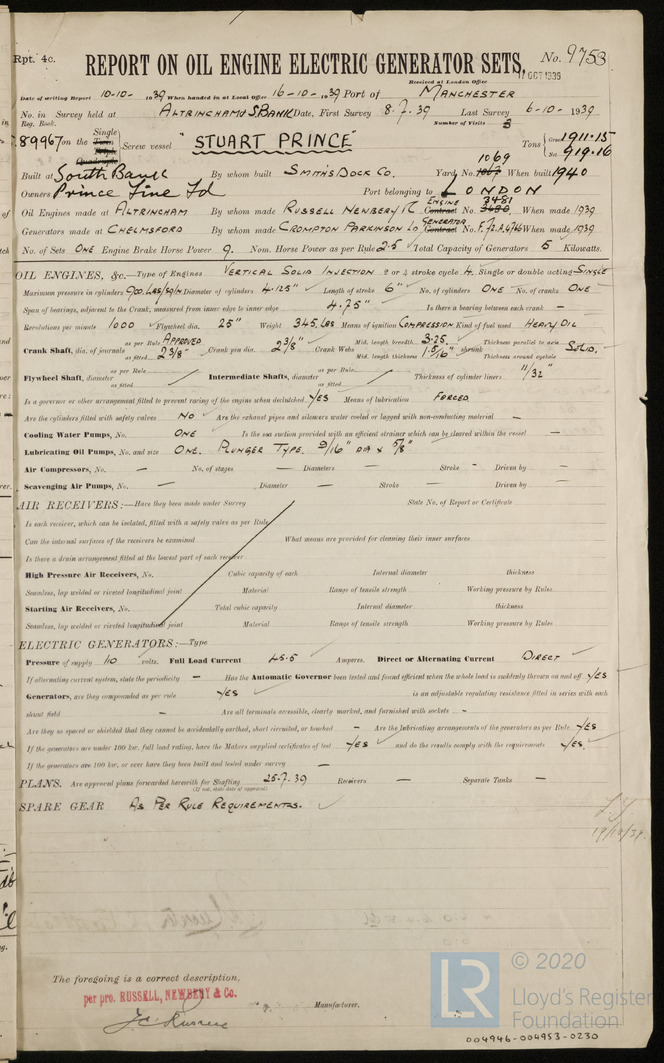 Rpt. 4c.
REPORT ON OIL ENGINE ELECTRIC GENERATOR SETS. No. 9753
Received at London Office 17 OCT 1939
Date of writing Report 10-10- 1939 When handed in at Local Office 16-10-1939 Port of MANCHESTER
No. in Reg. Book. Survey held at ALTRINCHAM & S. BANK Date, First Survey 8.7.39 Last Survey 6-10-1939
Number of Visits 3
89967 on the Single Twin Triple Quadruple Screw vessel "STUART PRINCE" Tons Gross 1911.15 Net 919.16
Built at South Bank By whom built SMITH'S DOCK CO. Yard No. 1067 1069 When built 1940
Owners Prince Line Ld Port belonging to LONDON
Oil Engines made at ALTRINCHAM By whom made RUSSELL NEWBERY & Co Contract ENGINE No. 3480 3481 When made 1939
Generators made at CHELMSFORD By whom made CROMPTON PARKINSON Ld Contract GENERATOR No. When made 1939
No. of Sets ONE Engine Brake Horse Power 9. Nom. Horse Power as per Rule 2.5 Total Capacity of Generators 5 Kilowatts.
OIL ENGINES, &c.—Type of Engines VERTICAL SOLID INJECTION 2 or 4 stroke cycle 4. Single or double acting SINGLE
Maximum pressure in cylinders 900 LBS/SQ/IN Diameter of cylinders 4.125" Length of stroke 6" No. of cylinders ONE No. of cranks ONE
Span of bearings, adjacent to the Crank, measured from inner edge to inner edge 4.75" Is there a bearing between each crank —
Revolutions per minute 1000 Flywheel dia. 25" Weight 345 LBS Means of ignition COMPRESSION Kind of fuel used HEAVY OIL
Crank Shaft, dia. of journals as per Rule APPROVED as fitted 2 3/8" Crank pin dia. 2 3/8" Crank Webs Mid. length breadth 3.25 Mid. length thickness 1 5/16" shrunk Thickness parallel to axis Thickness around eyehole SOLID.
Flywheel Shaft, diameter as per Rule as fitted Intermediate Shafts, diameter as per Rule as fitted Thickness of cylinder liners 11/32"
Is a governor or other arrangement fitted to prevent racing of the engine when declutched YES Means of lubrication FORCED
Are the cylinders fitted with safety valves NO Are the exhaust pipes and silencers water cooled or lagged with non-conducting material —
Cooling Water Pumps, No. ONE Is the sea suction provided with an efficient strainer which can be cleared within the vessel —
Lubricating Oil Pumps, No. and size ONE. PLUNGER TYPE. 9/16" DIA x 5/8"
Air Compressors, No. — No. of stages — Diameters — Stroke - Driven by —
Scavenging Air Pumps, No. — Diameter — Stroke — Driven by —
AIR RECEIVERS:—Have they been made under Survey State No. of Report or Certificate
Is each receiver, which can be isolated, fitted with a safety valve as per Rule
Can the internal surfaces of the receivers be examined What means are provided for cleaning their inner surfaces
Is there a drain arrangement fitted at the lowest part of each receiver
High Pressure Air Receivers, No. Cubic capacity of each Internal diameter thickness
Seamless, lap welded or riveted longitudinal joint Material Range of tensile strength Working pressure by Rules
Starting Air Receivers, No. Total cubic capacity Internal diameter thickness
Seamless, lap welded or riveted longitudinal joint Material Range of tensile strength Working pressure by Rules
ELECTRIC GENERATORS:—Type
Pressure of supply 110 volts. Full Load Current 45.5 Amperes. Direct or Alternating Current DIRECT
If alternating current system, state the periodicity — Has the Automatic Governor been tested and found efficient when the whole load is suddenly thrown on and off YES
Generators, are they compounded as per rule YES is an adjustable regulating resistance fitted in series with each
shunt field — Are all terminals accessible, clearly marked, and furnished with sockets -
Are they so spaced or shielded that they cannot be accidentally earthed, short circuited, or touched - Are the lubricating arrangements of the generators as per Rule YES
If the generators are under 100 kw. full load rating, have the Makers supplied certificates of test YES and do the results comply with the requirements YES
If the generators are 100 kw. or over have they been built and tested under survey —
PLANS. Are approved plans forwarded herewith for Shafting 25.7.39 Receivers — Separate Tanks —
(If not, state date of approval)
SPARE GEAR AS PER RULE REQUIREMENTS.
19/10/39.
The foregoing is a correct description,
per pro. RUSSELL, NEWBERY & Co.
Manufacturer.
LR
© 2020
Lloyd's Register
Foundation
004946-004953-0230